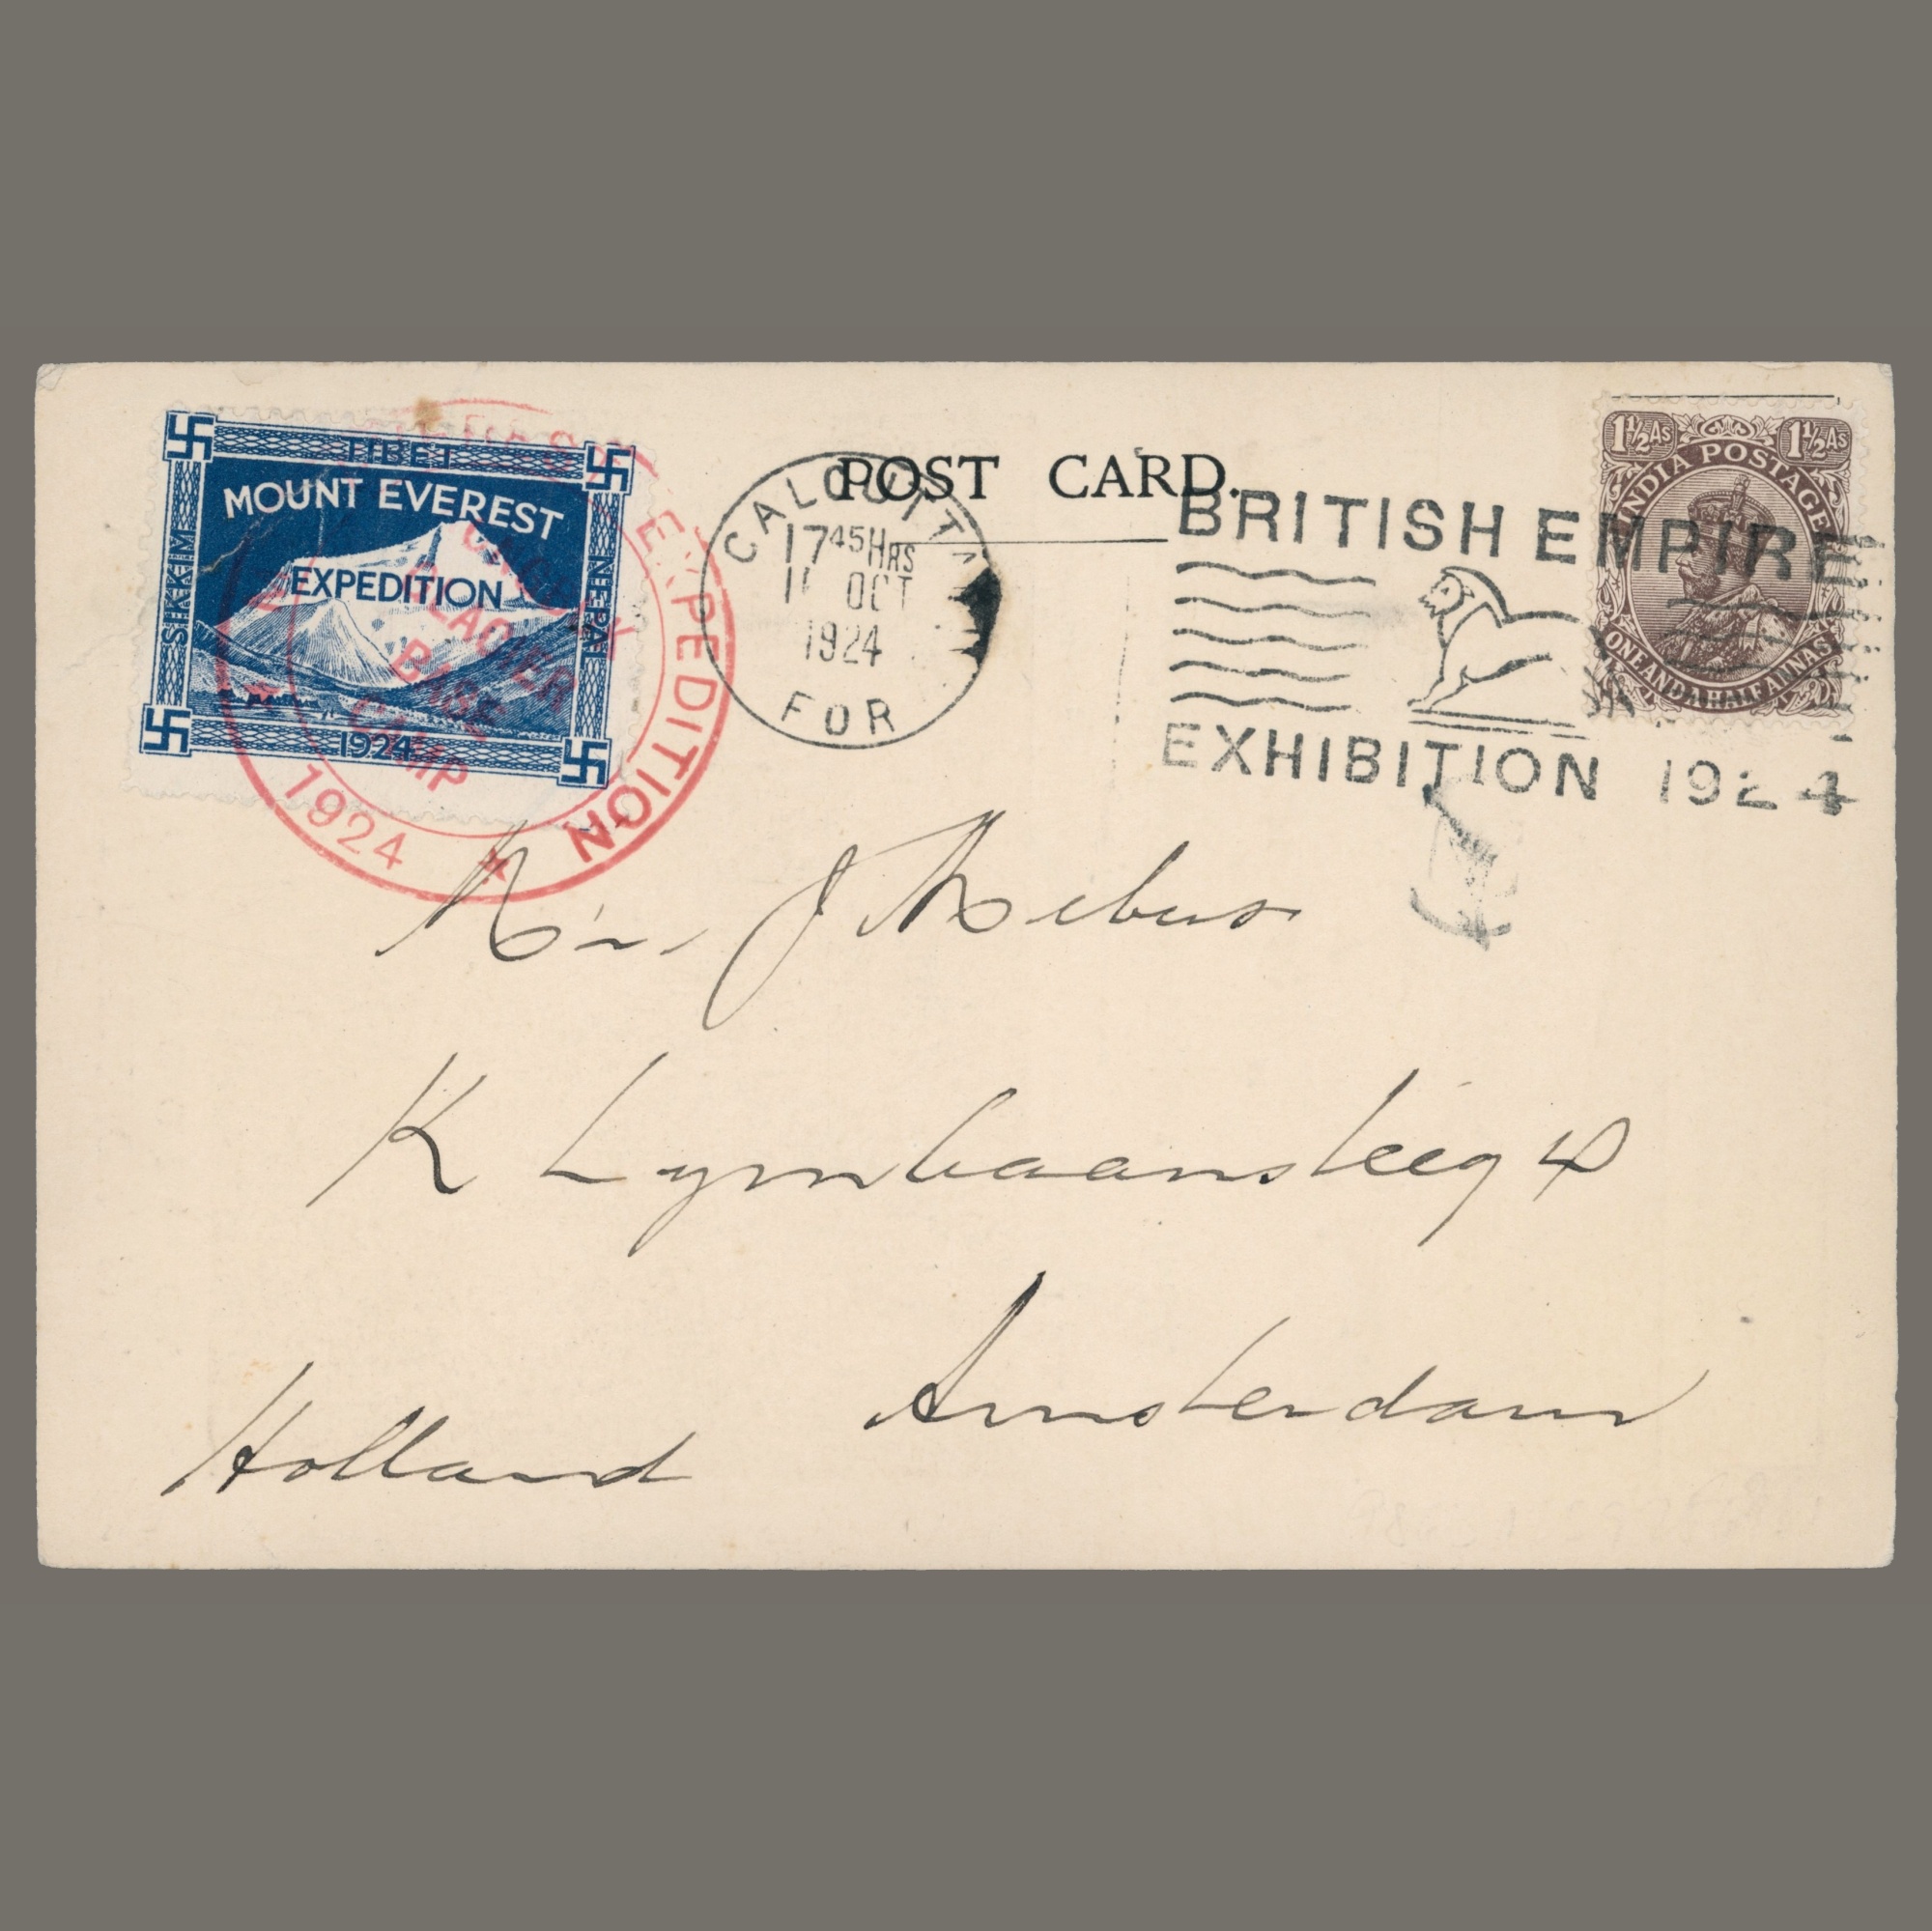 TIBET
MOUNT EVEREST
EXPEDITION
SIKKIM
NEPAL
1924
EXPEDITION
RONGBUK
GLACIER
BASE
CAMP
1924
POST CARD.
CALCUTTA
17 45 HRS
OCT
1924
FOR
BRITISH EMPIRE
EXHIBITION 1924
1½As 1½As
INDIA POSTAGE
ONE AND A HALF ANNAS
Mr. J Mebus
K Lynbaansteeg 4
Amsterdam
Holland